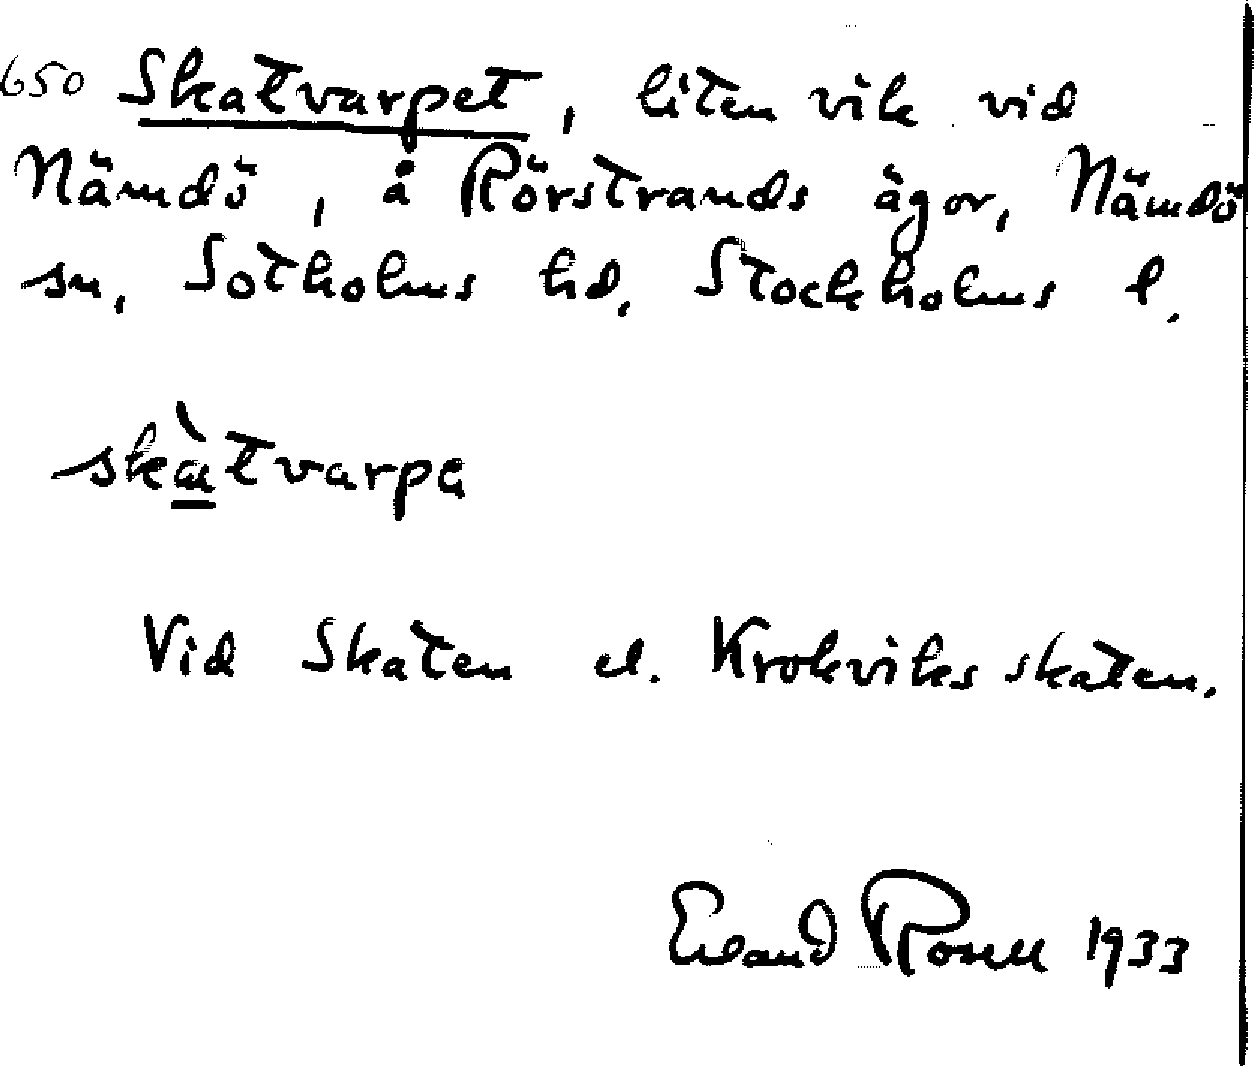 650 Skatvarpet, liten vik vid
Nämdö, å Rörstrands ägor, Nämdö
sn, Sotholms hd, Stockholms l.
skàtvarpa
Vid Skaten el. Krokviksskaten.
Erland Rosell 1933